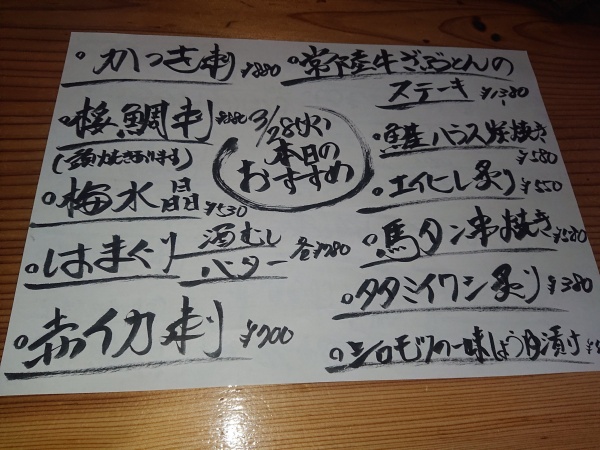 3/28(火)
本日の
おすすめ
かつお刺 ¥880
桜鯛刺 ¥880
(頭焼きあります)
梅水晶 ¥530
はまぐり 酒むし バター 各¥780
赤イカ刺 ¥700
常陸牛ざぶとんの
ステーキ ¥1380
鮭ハラス炭焼き ¥580
エイヒレ炙り ¥550
馬タン串焼き ¥580
タタミイワシ炙り ¥380
シロモツの一味しょうゆ漬け